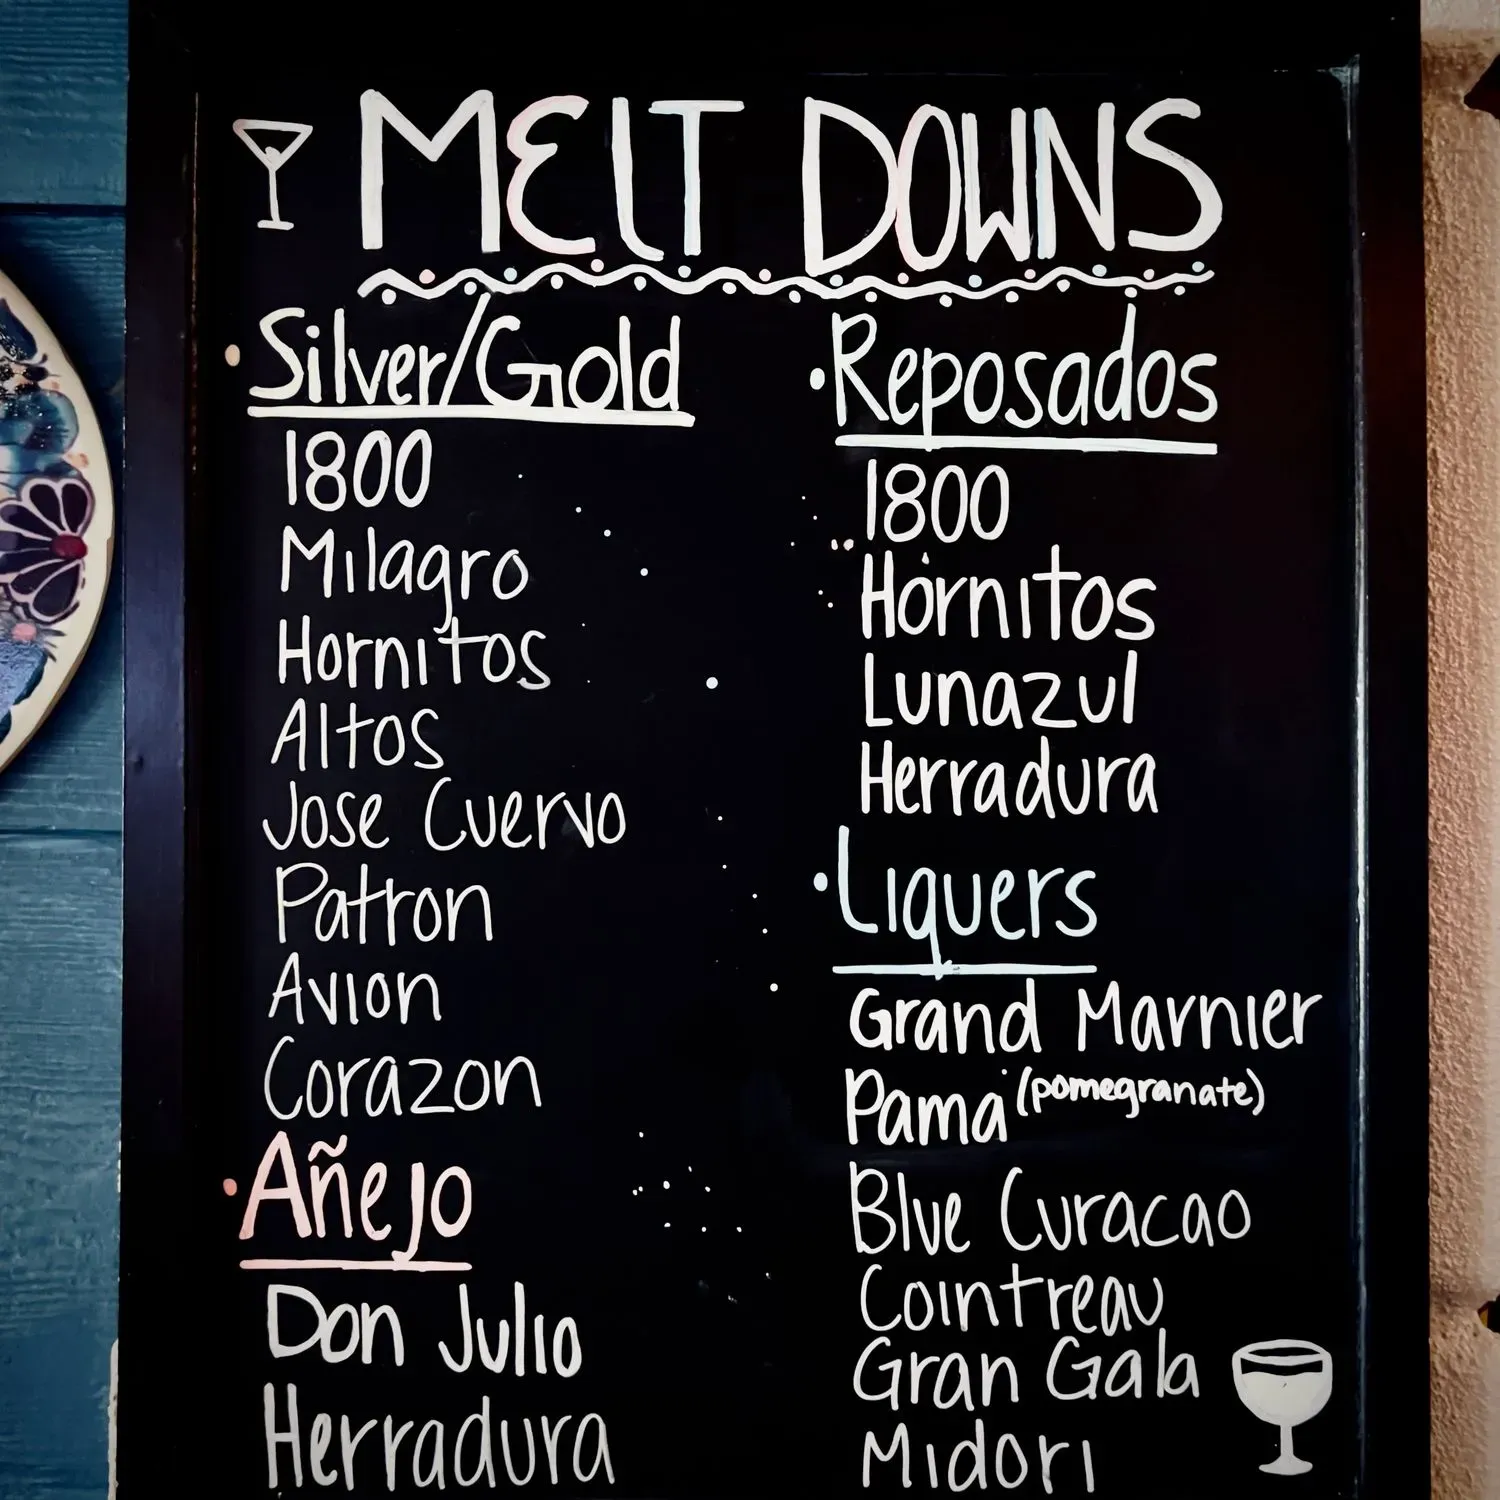 MELT DOWNS
Silver/Gold
1800
Milagro
Hornitos
Altos
Jose Cuervo
Patron
Avion
Corazon
Añejo
Don Julio
Herradura
Reposados
1800
Hornitos
Lunazul
Herradura
Liquers
Grand Marnier
Pama (pomegranate)
Blue Curacao
Cointreau
Gran Gala
Midori